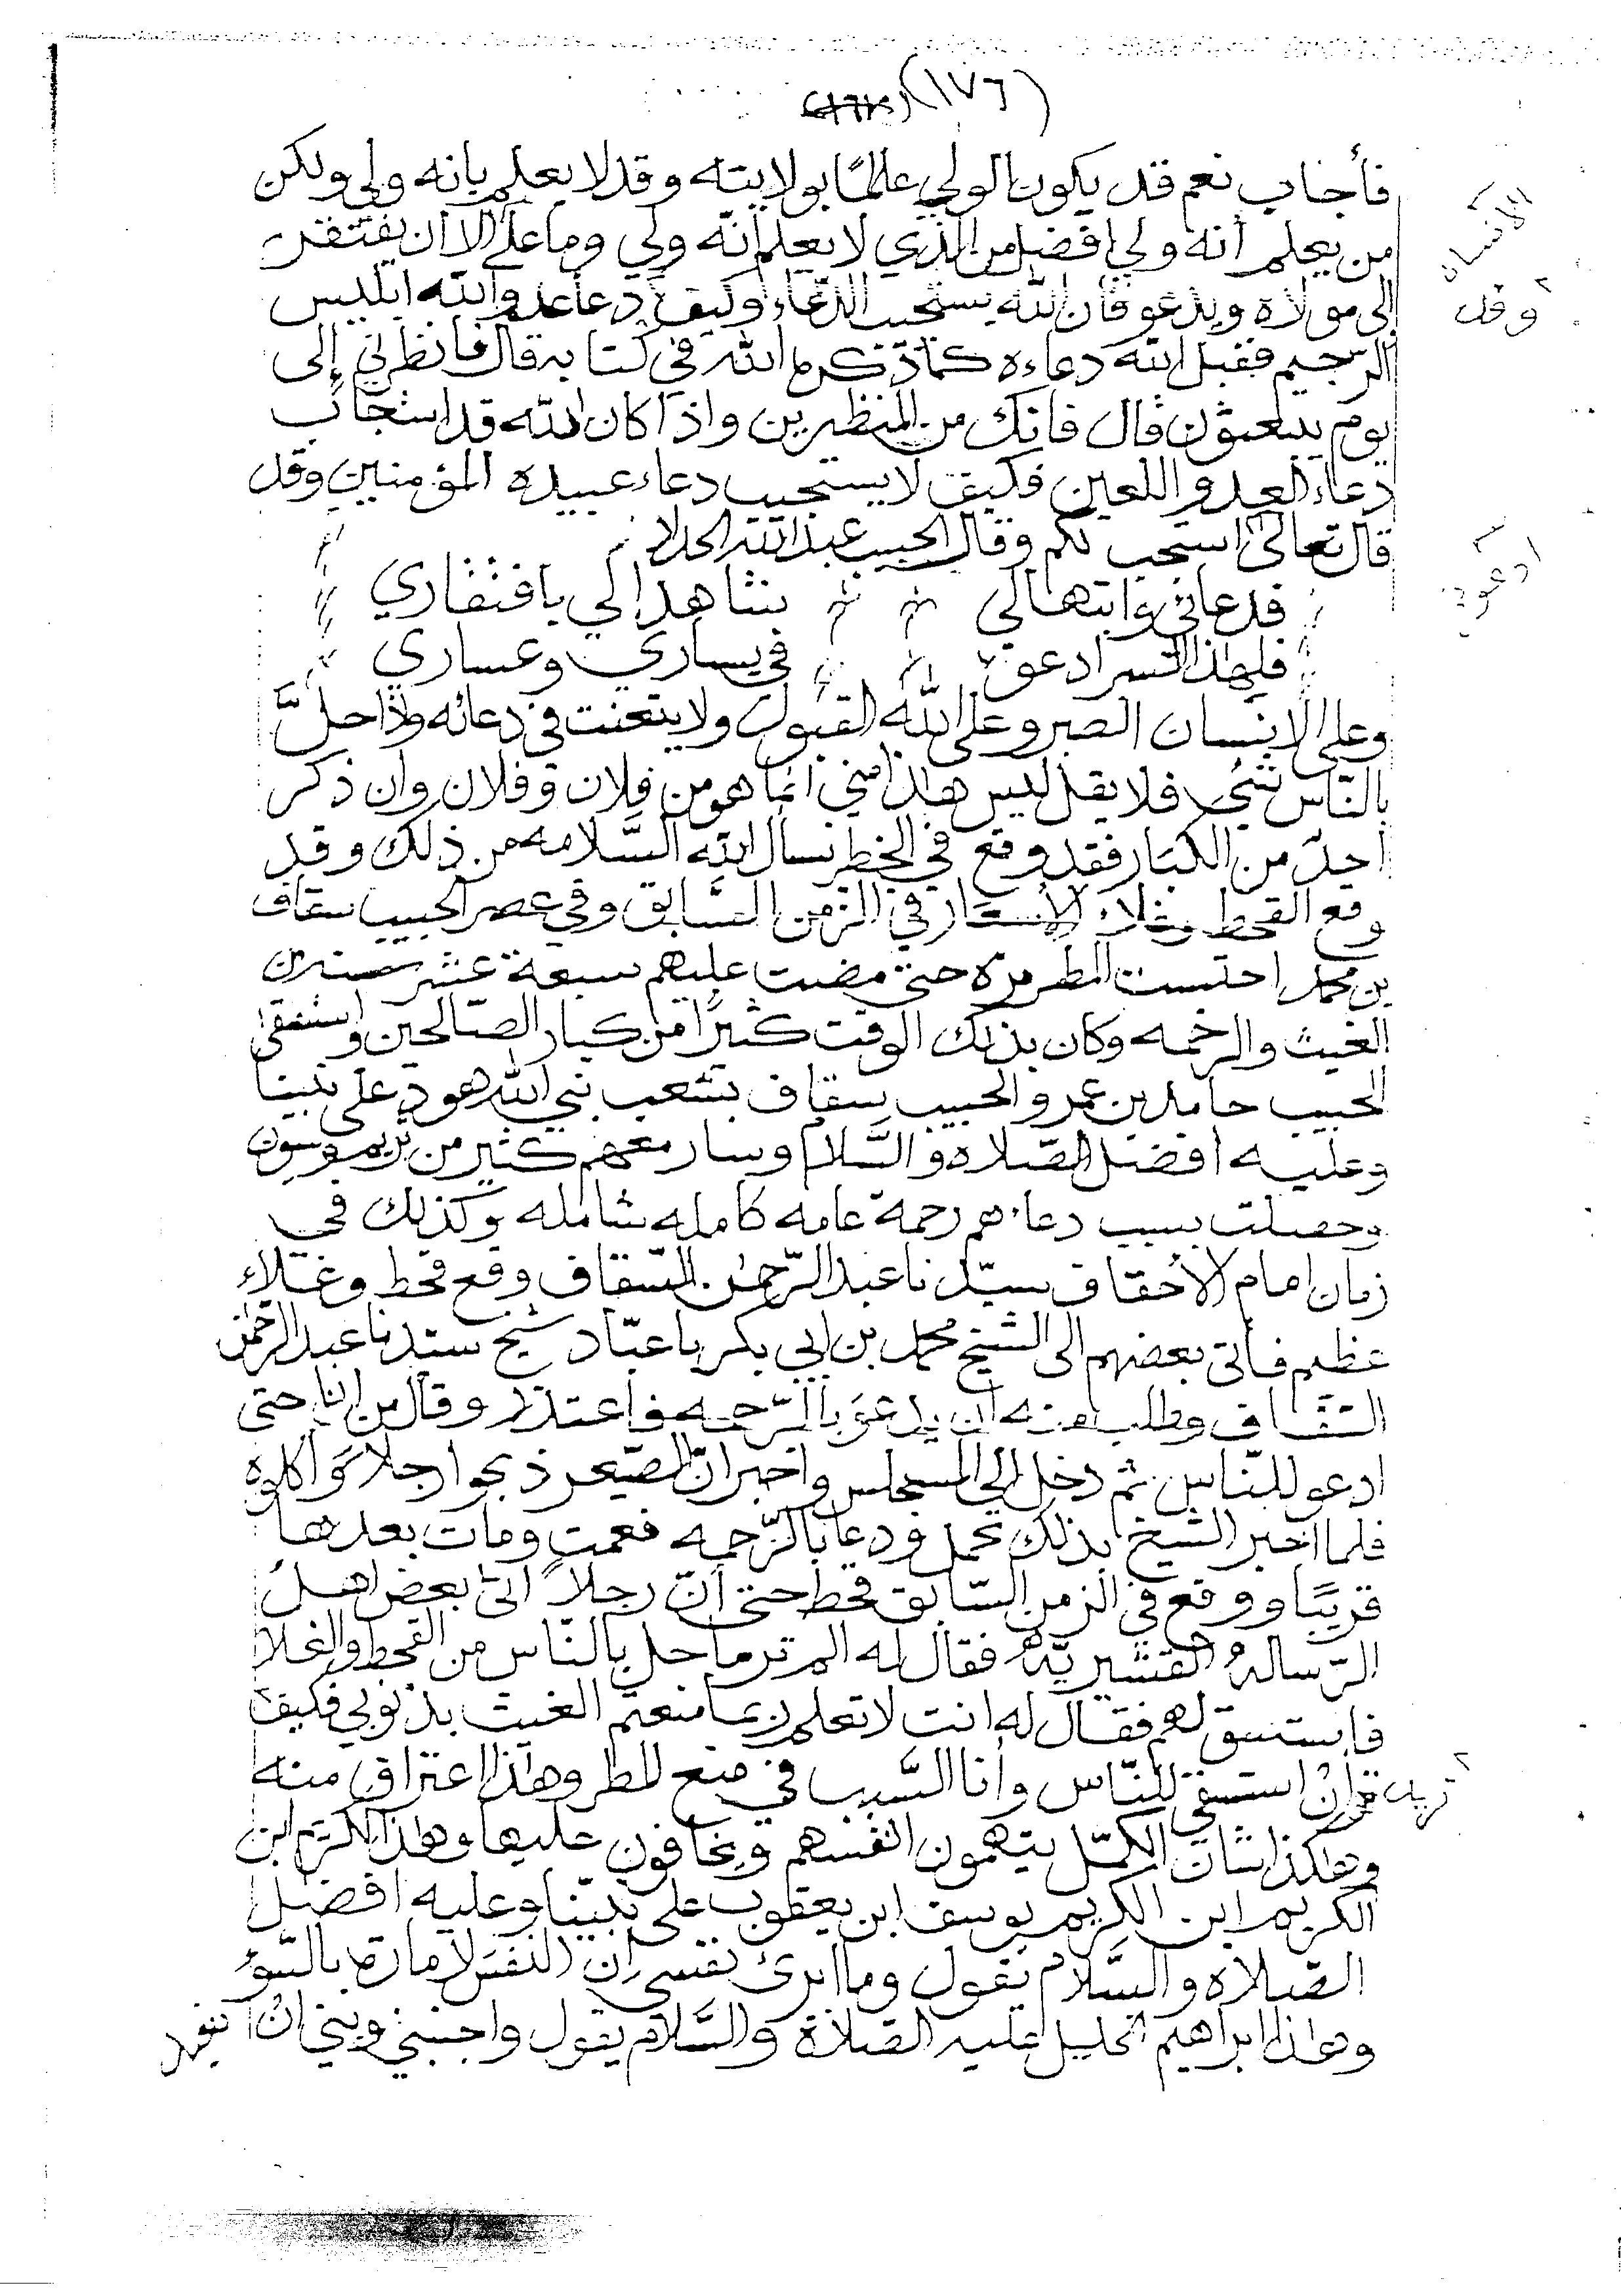 (١٧٦)
فأجاب نعم قد يكون الولي عالمًا بولايته وقد لا يعلم بانه ولي ولكن
من يعلم أنه ولي افضل من الذي لا يعلم انّه ولي وما على الا ان يفتقر
الانسان
إلى مولاه ويدعو فان الله يستجيب الدّعاء وكيف دعا عدو الله ابليس
وقد
الرّجيم فقبل الله دعاءه كما ذكره الله في كتابه قال فانظرني إلى
يوم يبعثون قال فانك من المنظرين واذا كان الله قد استجاب
دعاء العدو اللعين فكيف لا يستجيب دعاء عبيده المؤمنين وقد
قال تعالى استجب لكم وقال الحبيب عبد الله الحداد
ادعوني
فدعائي وابتهالي شاهد لي بافتقاري
فلهذا السر ادعو في يساري وعساري
وعلى الانسان الصبر وعلى الله القبول ولا يتعنت في دعائه واذا حلَّ
بالنّاس شيء فلا يقل ليس هاذا مني انما هو من فلان وفلان وان ذكر
احدّ من الكبار فقد وقع في الخطر نسأل الله السَّلامه من ذلك وقد
وقع القحط وغلاء الاسعار في الزمن السَّابق وفي عصر الحبيب سقاف
بن محمد احتبست المطر مره حتى مضت عليهم سبعة عشر سنين
الغيث والرحمه وكان بذلك الوقت كثيرًا من كبار الصّالحين واستسقى
الحبيب حامد بن عمر والحبيب سقاف بشعب نبي الله هود على نبينا
وعليه افضل الصّلاه والسَّلام وسار معهم كثير من تريم وسيون
وحصلت بسبب دعاءهم رحمة عامه كامله شامله وكذلك في
زمان امام الأحقاف سيّدنا عبد الرّحمن السّقاف وقع قحط وغلاء
عظيم فأتى بعضهم الى الشيخ محمد بن ابي بكر باعبّاد شيخ سيدنا عبد الرحمن
السّقاف وطلب منه ان يدعو بالرّحمه فاعتذر وقال من انا حتى
ادعو للنّاس ثم دخل إلى المجلس واخبر انّ الصيعر ذبحوا رجلا وأكلوه
فلما اخبر الشيخ بذلك تحمل ودعا بالرّحمه فعمت ومات بعدها
قريبًا ووقع في الزمن السّابق قحط حتى انّ رجلاً اتى بعض اهل
الرّساله القشيريّه فقال له الم تر ما حل بالنّاس من القحط والغلا
فاستسق لهم فقال له انت لا تعلم ربما منعتم الغيث بذنوبي فكيف
تريد
ان استسقي للنّاس وأنا السَّبب في منع المطر وهاذا اعتراف منه
وهاكذا شأن الكمّل يتهمون انفسهم ويخافون عليها وهاذا الكريم ابن
الكريم ابن الكريم يوسف ابن يعقوب على نبيّنا وعليه افضل
الصّلاه والسَّلام يقول وما ابرئ نفسي ان النفس لامارة بالسّوء
وهاذا ابراهيم الخليل عليه الصّلاة والسَّلام يقول واجنبني وبني ان
نعبد